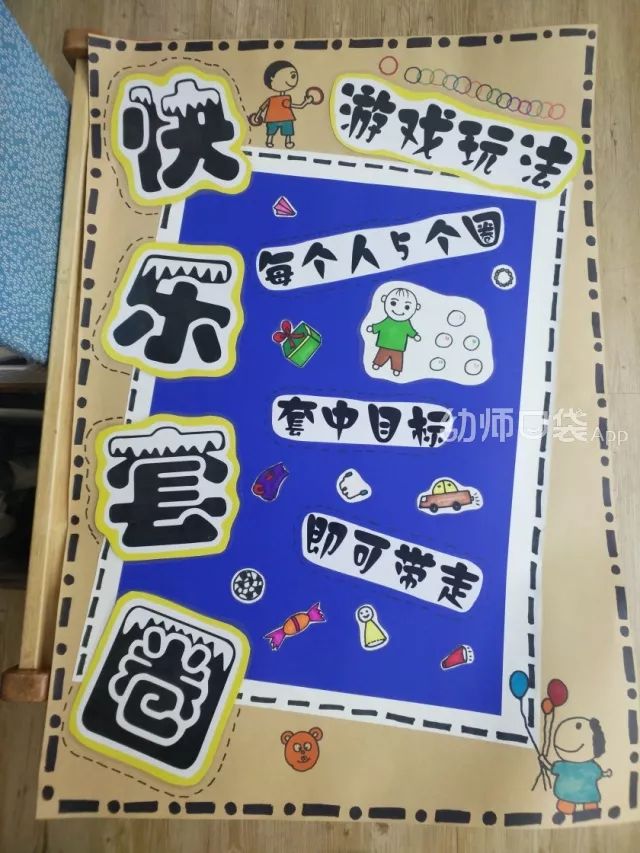 快乐套圈
游戏玩法
每个人5个圈
套中目标
即可带走
幼师口袋App